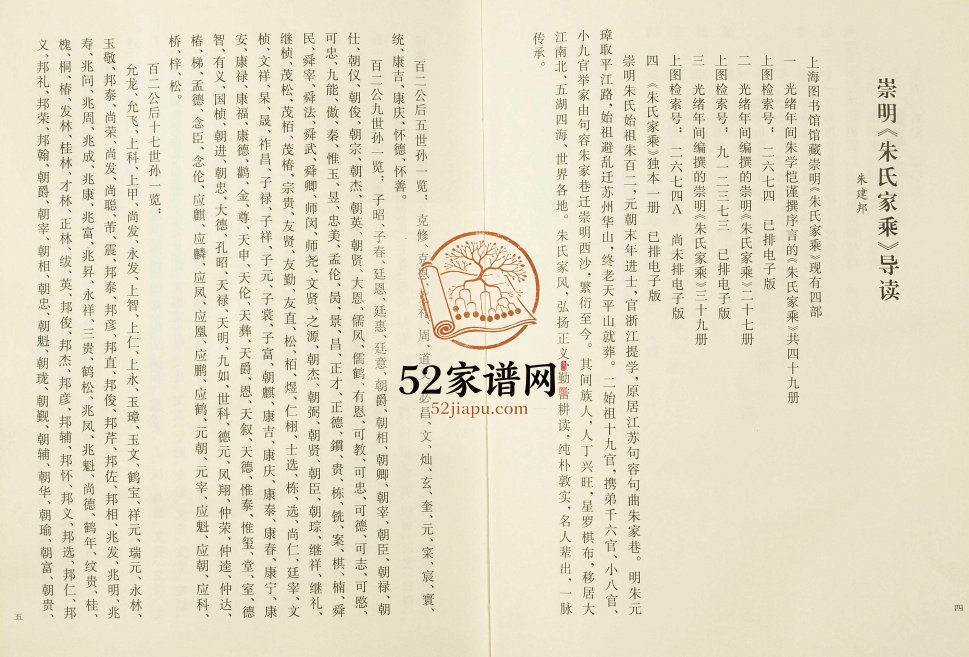 崇明《朱氏家乘》导读
朱建邦
上海图书馆馆藏崇明《朱氏家乘》现有四部
一 光绪年间朱学恺谨撰序言的《朱氏家乘》共四十九册
上图检索号：二六七四 已排电子版
二 光绪年间编撰的崇明《朱氏家乘》二十七册
上图检索号：九一二三七三 已排电子版
三 光绪年间编撰的崇明《朱氏家乘》三十九册
上图检索号：二六七四A 尚未排电子版
四 《朱氏家乘》独本一册 已排电子版
崇明朱氏始祖朱百二，元朝末年进士，官浙江提学，原居江苏句容句曲朱家巷。明朱元
璋取平江路，始祖避乱迁苏州华山，终老天平山就葬。二始祖十九官，携弟千六官、小八官、
小九官举家由句容朱家巷迁崇明西沙，繁衍至今。其间族人，人丁兴旺，星罗棋布，移居大
江南北、五湖四海、世界各地。朱氏家风，弘扬正义，勤奋耕读，纯朴敦实，名人辈出，一脉
传承。
四
百二公后五世孙一览：克修、克恩、礼、周、道、文、必昌、文、灿、玄、奎、元、寀、宸、寰、
统、康吉、康庆、怀德、怀善。
百二公九世孙一览：子昭、子春、廷恩、廷惠、廷意、朝爵、朝相、朝卿、朝宰、朝臣、朝禄、朝
仕、朝仪、朝俊、朝宗、朝杰、朝英、朝贤、大恩、儒凤、儒鹤、有恩、可教、可忠、可德、可志、可愍、
可忠、九能、傲、秦、惟玉、昱、忠美、孟伦、景、昌、正才、正德、鑕、贵、栋、铣、案、棋、楠、舜
民、舜宰、舜法、舜武、舜卿、师闵、师尧、文贤、之源、朝杰、朝弼、朝贤、朝臣、朝琮、继祥、继礼、
继桢、茂松、茂栢、茂椿、宗贵、友贤、友勤、友直、松、栢、煜、仁栩、士选、栋、选、尚仁、廷宰、文
桢、文祥、杲、晟、祚昌、子禄、子祥、子元、子裳、子富、朝麒、康吉、康庆、康泰、康春、康宁、康
安、康禄、康福、康德、鹳、金、尊、天申、天伦、天彝、天爵、恩、天叙、天德、惟泰、惟玺、堂、室、德
智、有义、国桢、朝进、朝忠、大德、孔昭、天禄、天明、九如、世科、德元、凤翔、仲荣、仲逵、仲达、
椿、梯、孟德、念臣、念伦、应麒、应麟、应凤、应凰、应鹏、应鹤、元朝、元宰、应魁、应朝、应科、
桥、梓、松。
百二公后十七世孙一览：
允龙、允飞、上科、上甲、尚发、永发、上智、上仁、上永、玉璋、玉文、鹤宝、祥元、瑞元、永林、
玉敬、邦泰、尚荣、尚发、尚聪、芾、震、邦泰、邦彦、邦直、邦俊、邦芹、邦佐、邦相、兆发、兆明、兆
寿、兆问、兆周、兆成、兆康、兆富、兆昇、永祥、三贵、鹤松、兆凤、兆魁、尚德、鹤年、纹贵、桂、
槐、桐、椿、发林、桂林、才林、正林、绂、英、邦俊、邦杰、邦彦、邦辅、邦怀、邦义、邦选、邦仁、邦
义、邦礼、邦荣、邦翰、朝爵、朝宰、朝相、朝忠、朝魁、朝珑、朝觐、朝辅、朝华、朝瑜、朝富、朝贵、
五
52家谱网
52jiapu.com